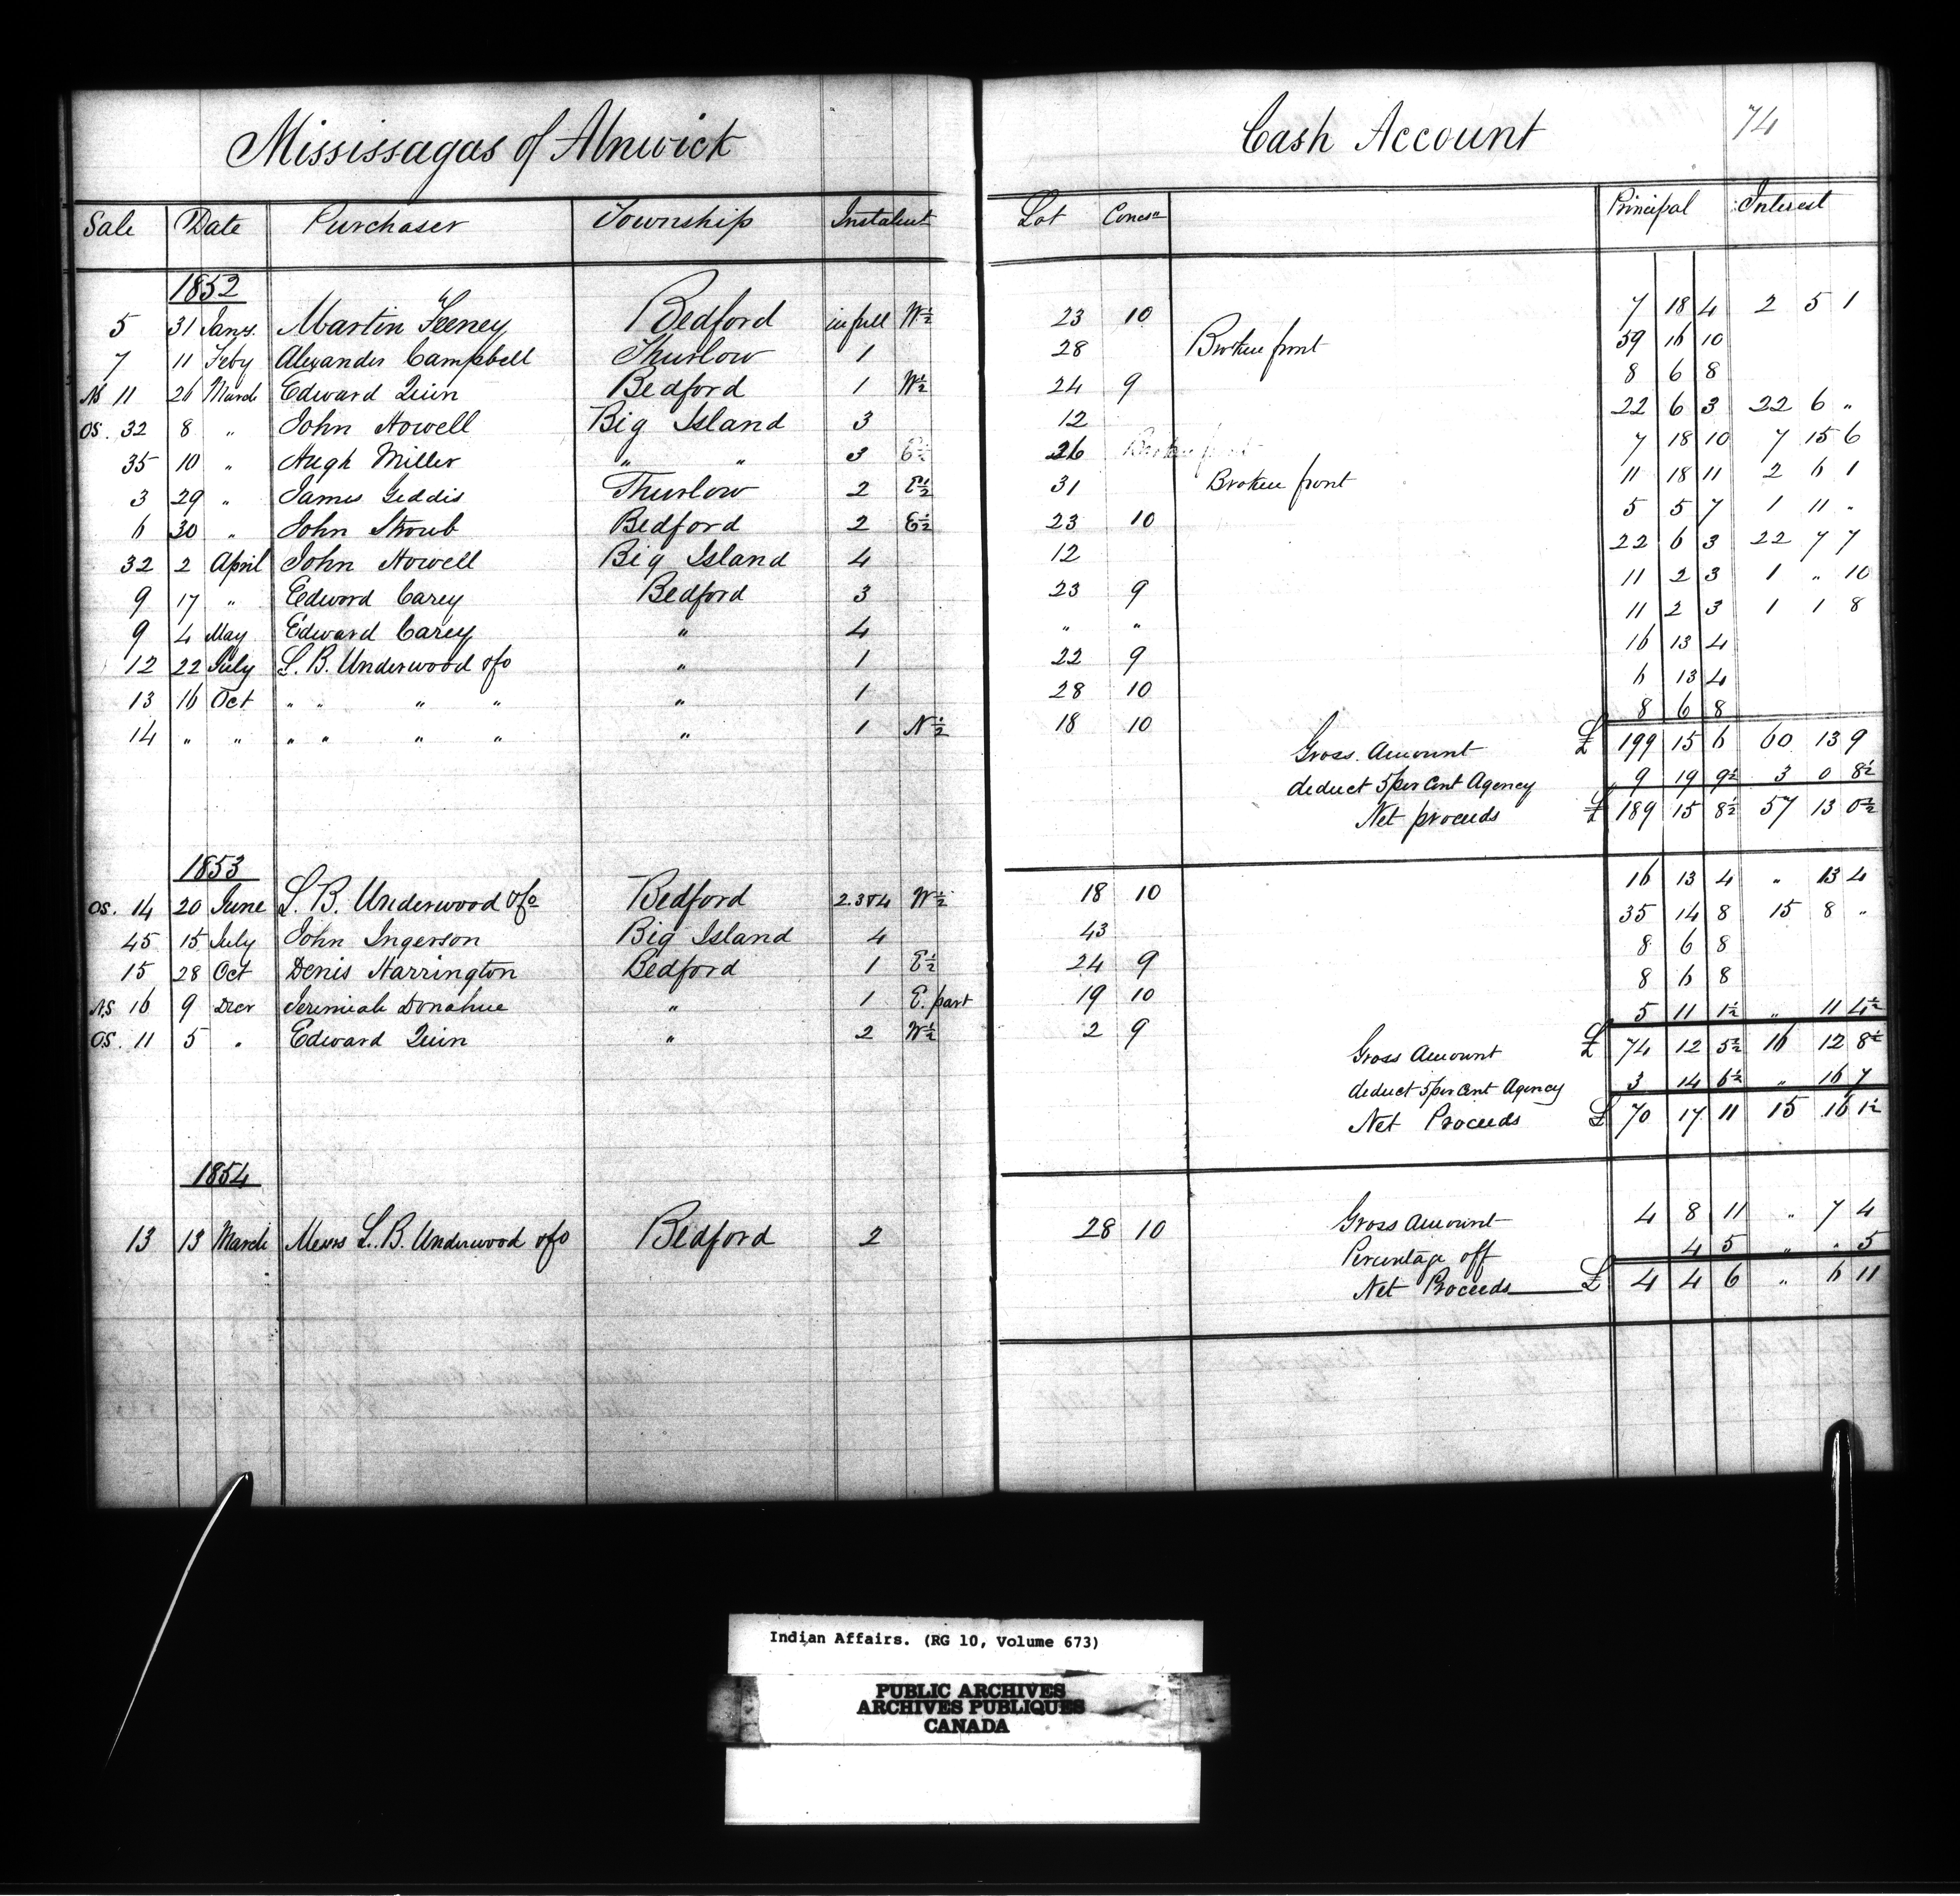 Mississagas of Alnwick Cash Account 74
Sale Date Purchaser Township Instalent Lot Concsn Principal Interest
1852
5 31 Jany. Martin Feeney Bedford in full W½ 23 10 7 18 4 2 5 1
7 11 Feby Alexander Campbell Thurlow 1 28 Broken front 59 16 10
NS 11 26 March Edward Quin Bedford 1 W½ 24 9 8 6 8
OS. 32 8 " John Howell Big Island 3 12 22 6 3 22 6 "
35 10 " Hugh Miller " " 3 E½ 26 Broken front 7 18 10 7 15 6
3 29 " James Geddis Thurlow 2 E½ 31 Broken front 11 18 11 2 6 1
6 30 " John Stroub Bedford 2 E½ 23 10 5 5 7 1 11 "
32 2 April John Howell Big Island 4 12 22 6 3 22 7 7
9 17 " Edword Carey Bedford 3 23 9 11 2 3 1 " 10
9 4 May Edward Carey " 4 " " 11 2 3 1 1 8
12 22 July L. B. Underwood &Co " 1 22 9 16 13 4
13 16 Oct " " " " " 1 28 10 6 13 4
14 " " " " " " " 1 N½ 18 10 8 6 8
Gross Amount £ 199 15 6 60 13 9
deduct 5 per Cent Agency 9 19 9½ 3 0 8½
Net proceeds £ 189 15 8½ 57 13 0½
1853
OS. 14 20 June L. B. Underwood &Co Bedford 2.3&4 W½ 18 10 16 13 4 " 13 4
45 15 July John Ingerson Big Island 4 43 35 14 8 15 8 "
15 28 Oct Denis Harrington Bedford 1 E½ 24 9 8 6 8
NS 16 9 Decr Jeremiah Donahue " 1 E. part 19 10 8 6 8
OS. 11 5 " Edward Quin " 2 W½ 2 9 5 11 1½ " 11 4½
Gross Amount £ 74 12 5½ 16 12 8½
deduct 5 per Cent Agency 3 14 6½ " 16 7
Net Proceeds £ 70 17 11 15 16 1½
1854
13 13 March Messrs L. B. Underwood &Co Bedford 2 28 10 Gross Amount 4 8 11 " 7 4
Percentage off 4 5 " " 5
Net Proceeds £ 4 4 6 " 6 11
Indian Affairs. (RG 10, Volume 673)
PUBLIC ARCHIVES
ARCHIVES PUBLIQUES
CANADA